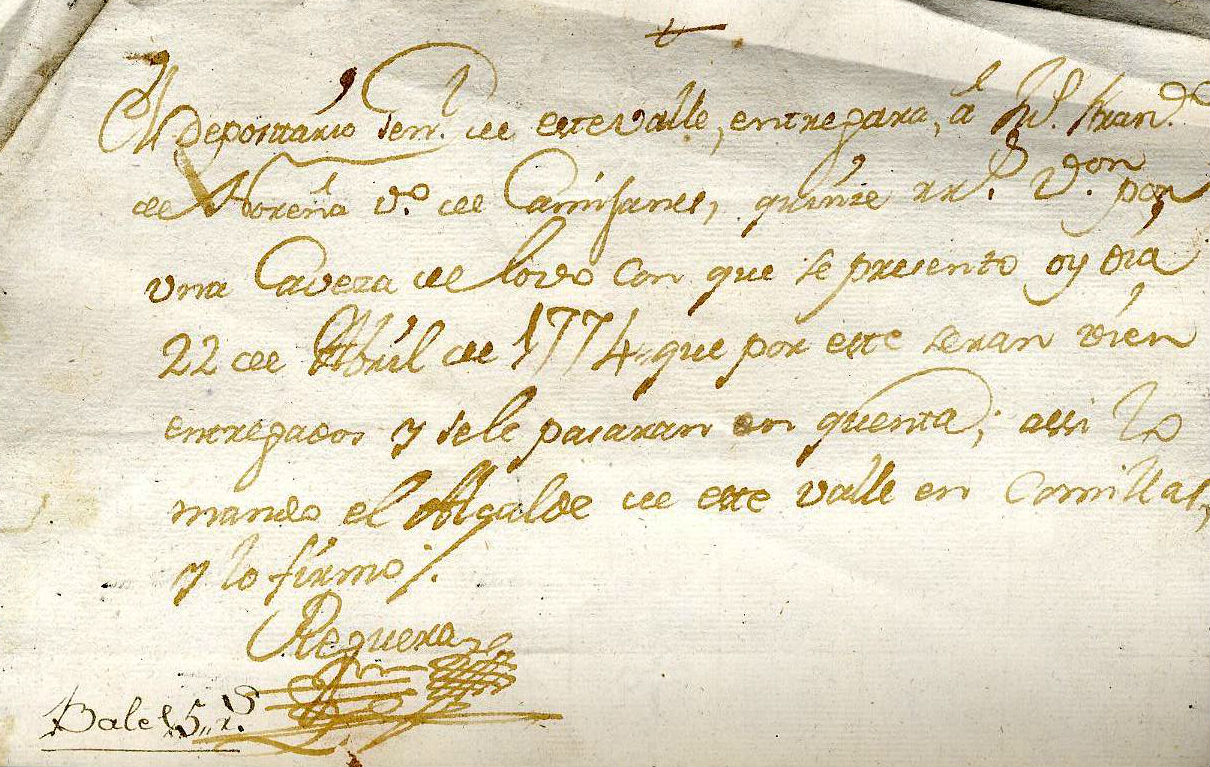 El Depositario Gen.l de este valle, entregara, á Jph. Fran.co
de Noreña v.o de Camijanes, quinze rr.s v.on por
vna Caveza de lovo con que se presento oy dia
22 de Abril de 1774 que por este seran vien
entregados y sele pasaran en quenta; assi lo
mando el Alcalde de este valle en Comillas,
y lo firmo/.
Reguera
Bale 15,, r.s